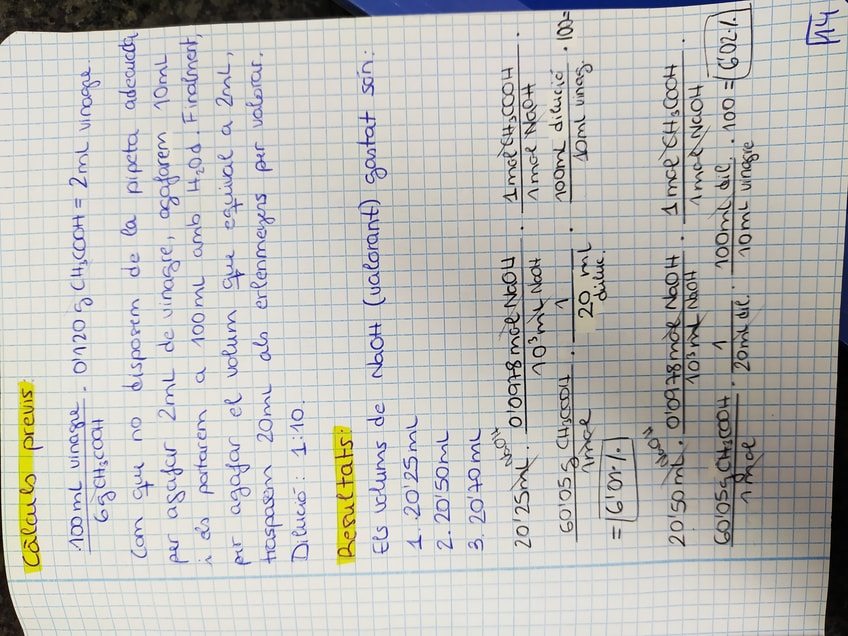 Càlculs previs:
100 mL vinagre / 6 g CH₃COOH · 0'120 g CH₃COOH = 2 mL vinagre
Com que no disposem de la pipeta adequada
per agafar 2mL de vinagre, agafarem 10mL
i els portarem a 100mL amb H₂Od. Finalment,
per agafar el volum que equival a 2mL,
traspasem 20mL als erlenmeyers per valorar.
Dilució: 1:10.
Resultats:
Els volums de NaOH (valorant) gastat són:
1. 20'25mL
2. 20'50mL
3. 20'70mL
20'25 mL NaOH · 0'0978 mol NaOH / 10³ mL NaOH · 1 mol CH₃COOH / 1 mol NaOH ·
60'05 g CH₃COOH / 1 mol · 1 / 20 mL diluc. · 100mL dilució / 10mL vinag. · 100 =
=
20'50 mL NaOH · 0'0978 mol NaOH / 10³ mL NaOH · 1 mol CH₃COOH / 1 mol NaOH ·
60'05 g CH₃COOH / 1 mol · 1 / 20mL dil. · 100mL dil. / 10mL vinagre · 100 = 6'02%
14